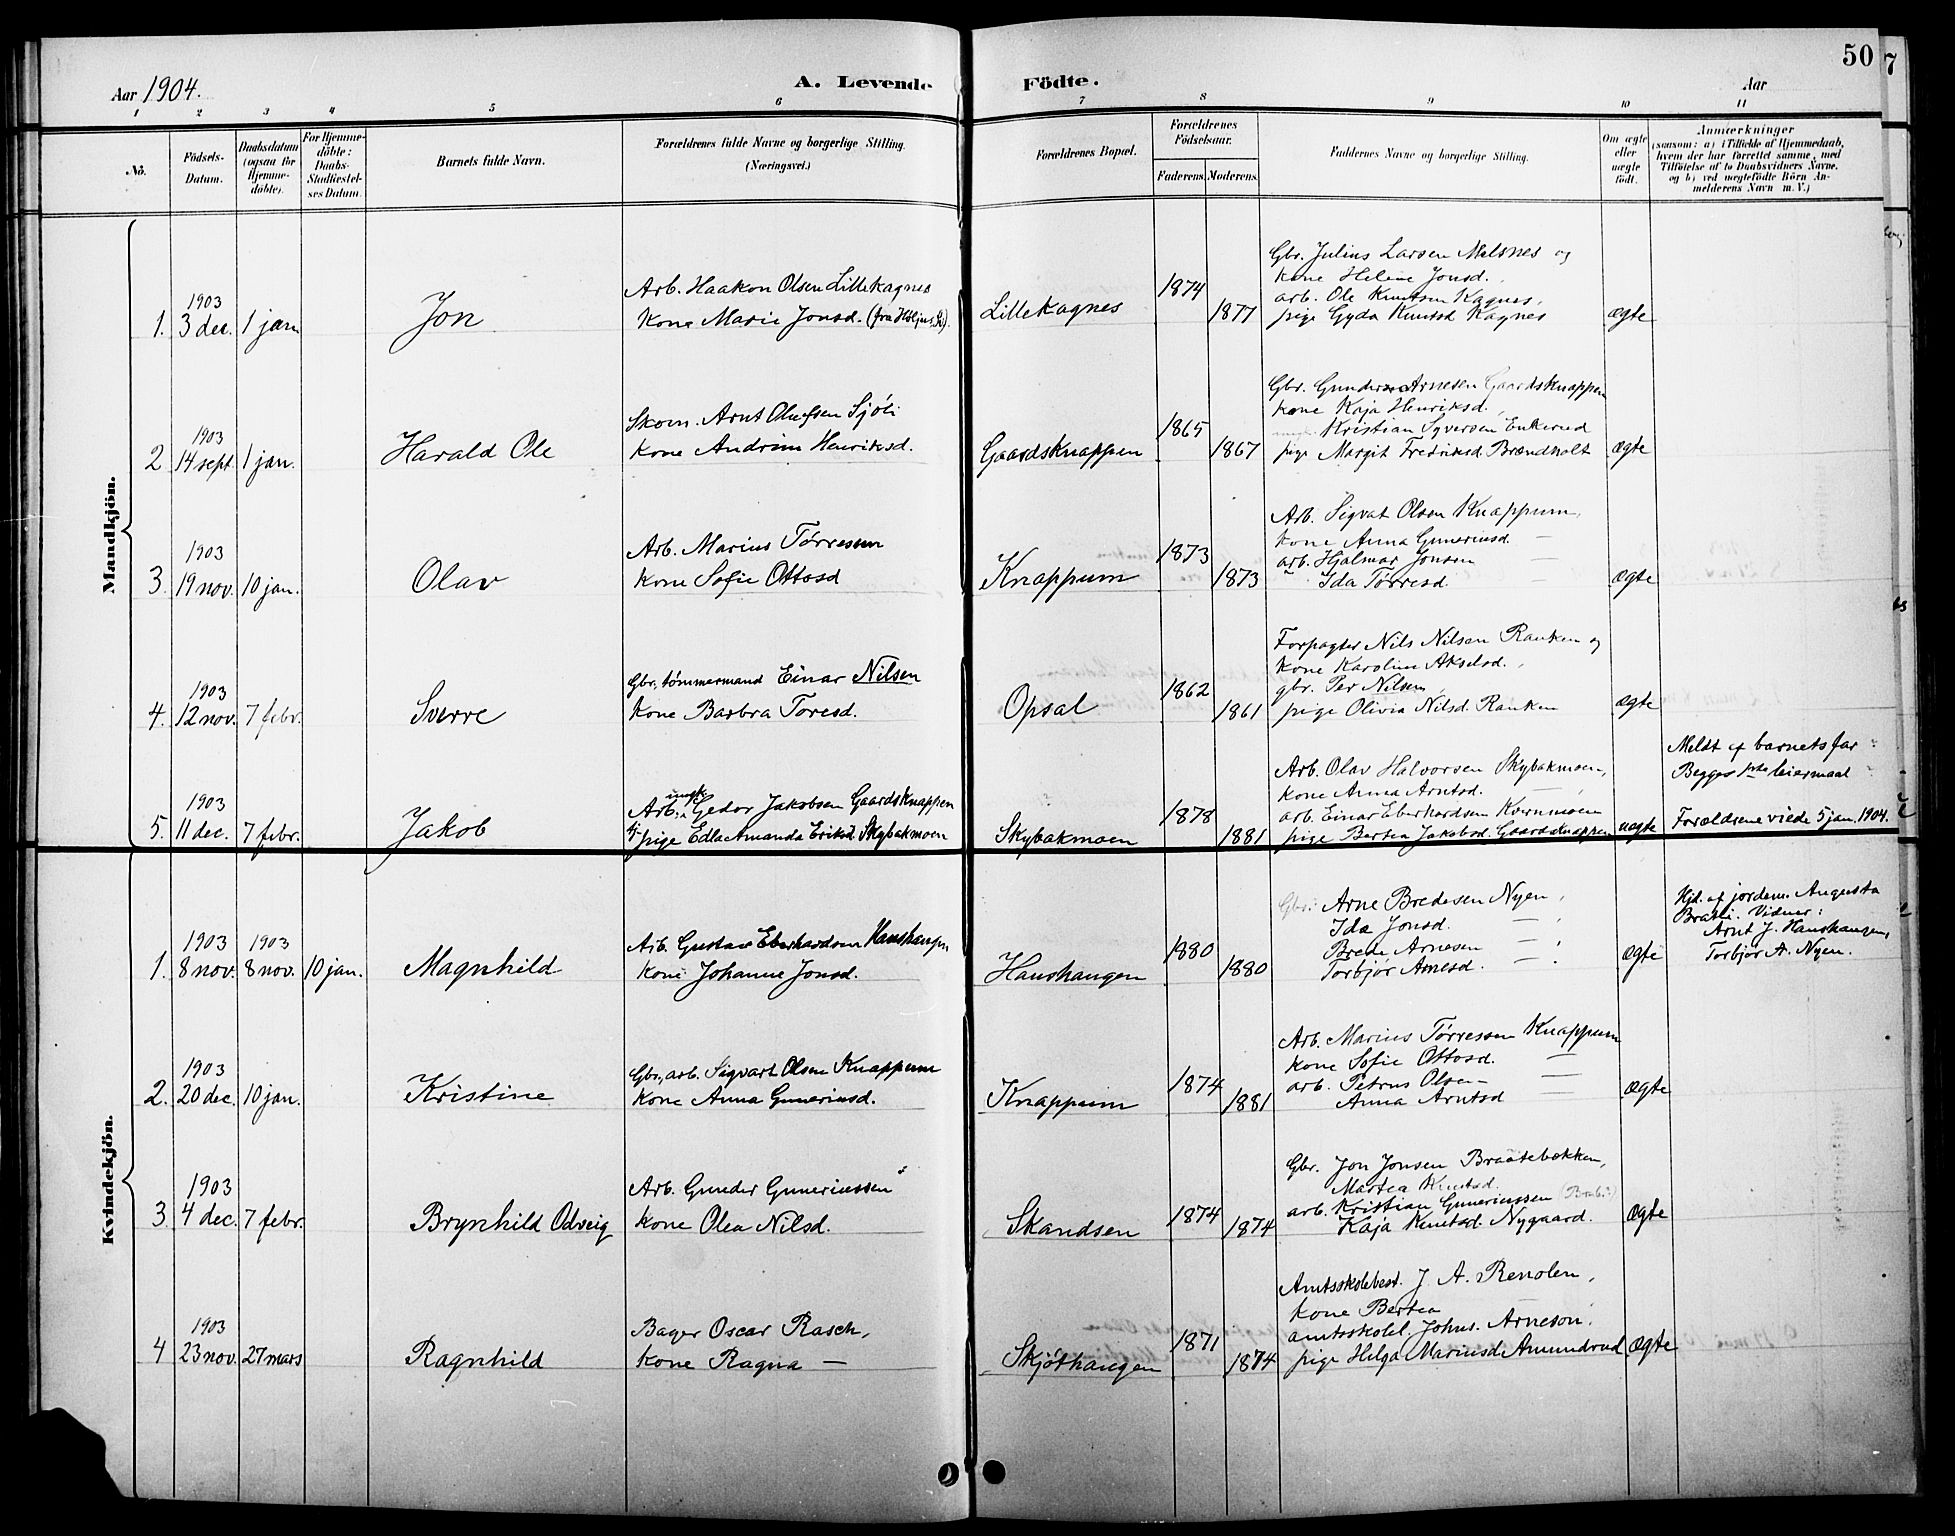 50
7
Aar 1904.
A. Levende Födte.
Aar
1 2 3 4 5 6 7 8 9 10 11
No.
Födsels-
Datum.
Daabsdatum
(ogsaa for
Hjemme-
döbte).
For Hjemme-
döbte:
Daabs-
Stadfæstel-
ses Datum.
Barnets fulde Navn.
Forældrenes fulde Navne og borgerlige Stilling.
(Næringsvei.)
Forældrenes Bopæl.
Forældrenes
Födselsaar.
Faderens. Moderens.
Faddernes Navne og borgerlige Stilling.
Om ægte
eller
uægte
født.
Anmærkninger
(saasom: a) i Tilfælde af Hjemmedaab,
hvem der har forrettet samme, med
Tilföielse af to Daabsvidners Navne,
og b) ved uægtefödte Börn An-
melderens Navn m. V.)
Mandkjön.
1. 1903
3 dec. 1 jan
Jon
Arb. Haakon Olsen Lillekagnes
Kone Marie Jonsd.
Lillekagnes
1874
1877
Gbr. Julius Larsen Melsnes og
kone Helene Jonsd.
arb. Ole Knutsen Kagnes,
pige Gyda Knutsd Kagnes
ægte
2 1903
14 sept. 1 jan.
Harald Ole
Skom. Arnt Olufsen Sjöli
Kone Andrine Henriksd.
Gaardsknappen
1865
1867
Gbr. Gunder Arnesen Gaardsknappen
kone Kaja Henriksd.
Kristian Syversen Enkerud
pige Margit Fredriksd. Brændholt
ægte
3. 1903
19 nov. 10 jan.
Olav
Arb. Marius Tørresen
Kone Sofie Ottosd
Knappum
1873
1873
Arb. Sigvat Olsen Knappum,
kone Anna Guneriusd. —
arb. Hjalmar Jonsen —
" Ida Tørresd. —
ægte
4. 1903
12 nov. 7 febr.
Sverre
Gbr., tømmermand Einar Nilsen
Kone Barbra Toresd.
Opsal
1862
1861
Forpagter Nils Nilsen Ranken og
kone Karoline Akselsd.,
gbr. Per Nilsen,
pige Olivia Nilsd. Ranken
ægte
5. 1903
11 dec. 7 febr.
Jakob
Arb., ungk. Gedor Jakobsen Gaardsknappen
tj. pige Edla Amanda Eriksd. Skybakmoen
Skybakmoen
1878
1881
Arb. Olav Halvorsen Skybakmoen,
kone Anna Arntsd. —
arb. Einar Eberhardsen Kvernmoen
pige Bertea Jakobsd. Gaardsknappen
uægte
Meldt af barnets far
Begges 1ste leiermaal
Forældrene viede 5 jan. 1904.
Kvindekjön.
1. 1903
8 nov. 1903
8 nov. 10 jan.
Magnhild
Arb. Gustav Eberhardsen Haushaugen
Kone Johanne Jonsd.
Haushaugen
1880
1880
Gbr. Arne Bredesen Nyen,
Ida Jonsd. —
Brede Arnesen —
Torbjør Arnesd. —
ægte
Hjd. af jordem. Augusta
Bratli. Vidner:
Arnt J. Haushaugen,
Torbjør A. Nyen.
2. 1903
20 dec. 10 jan.
Kristine
Gbr., arb. Sigvart Olsen Knappum
Kone Anna Guneriusd.
Knappum
1874
1881
Arb. Marius Tørresen Knappum
kone Sofie Ottosd. —
arb. Petrus Olsen —
Anna Arntsd —
ægte
3. 1903
4 dec. 7 febr.
Brynhild Odveig
Arb. Gunder Guneriussen
Kone Olea Nilsd.
Skandsen
1874
1874
Gbr. Jon Jonsen Braatebækken,
Martea Knutsd.
arb. Kristian Guneriussen
Kaja Knutsd. Nygaard.
ægte
4 1903
23 nov. 27 mars
Ragnhild
Bager Oscar Rasch,
Kone Ragna —
Skjøthaugen
1871
1874
Amtsskolebest. J. A. Renolen,
kone Bertea
amtsskolel. Johns. Arneson,
pige Helga Mariusd. Amundrud
ægte